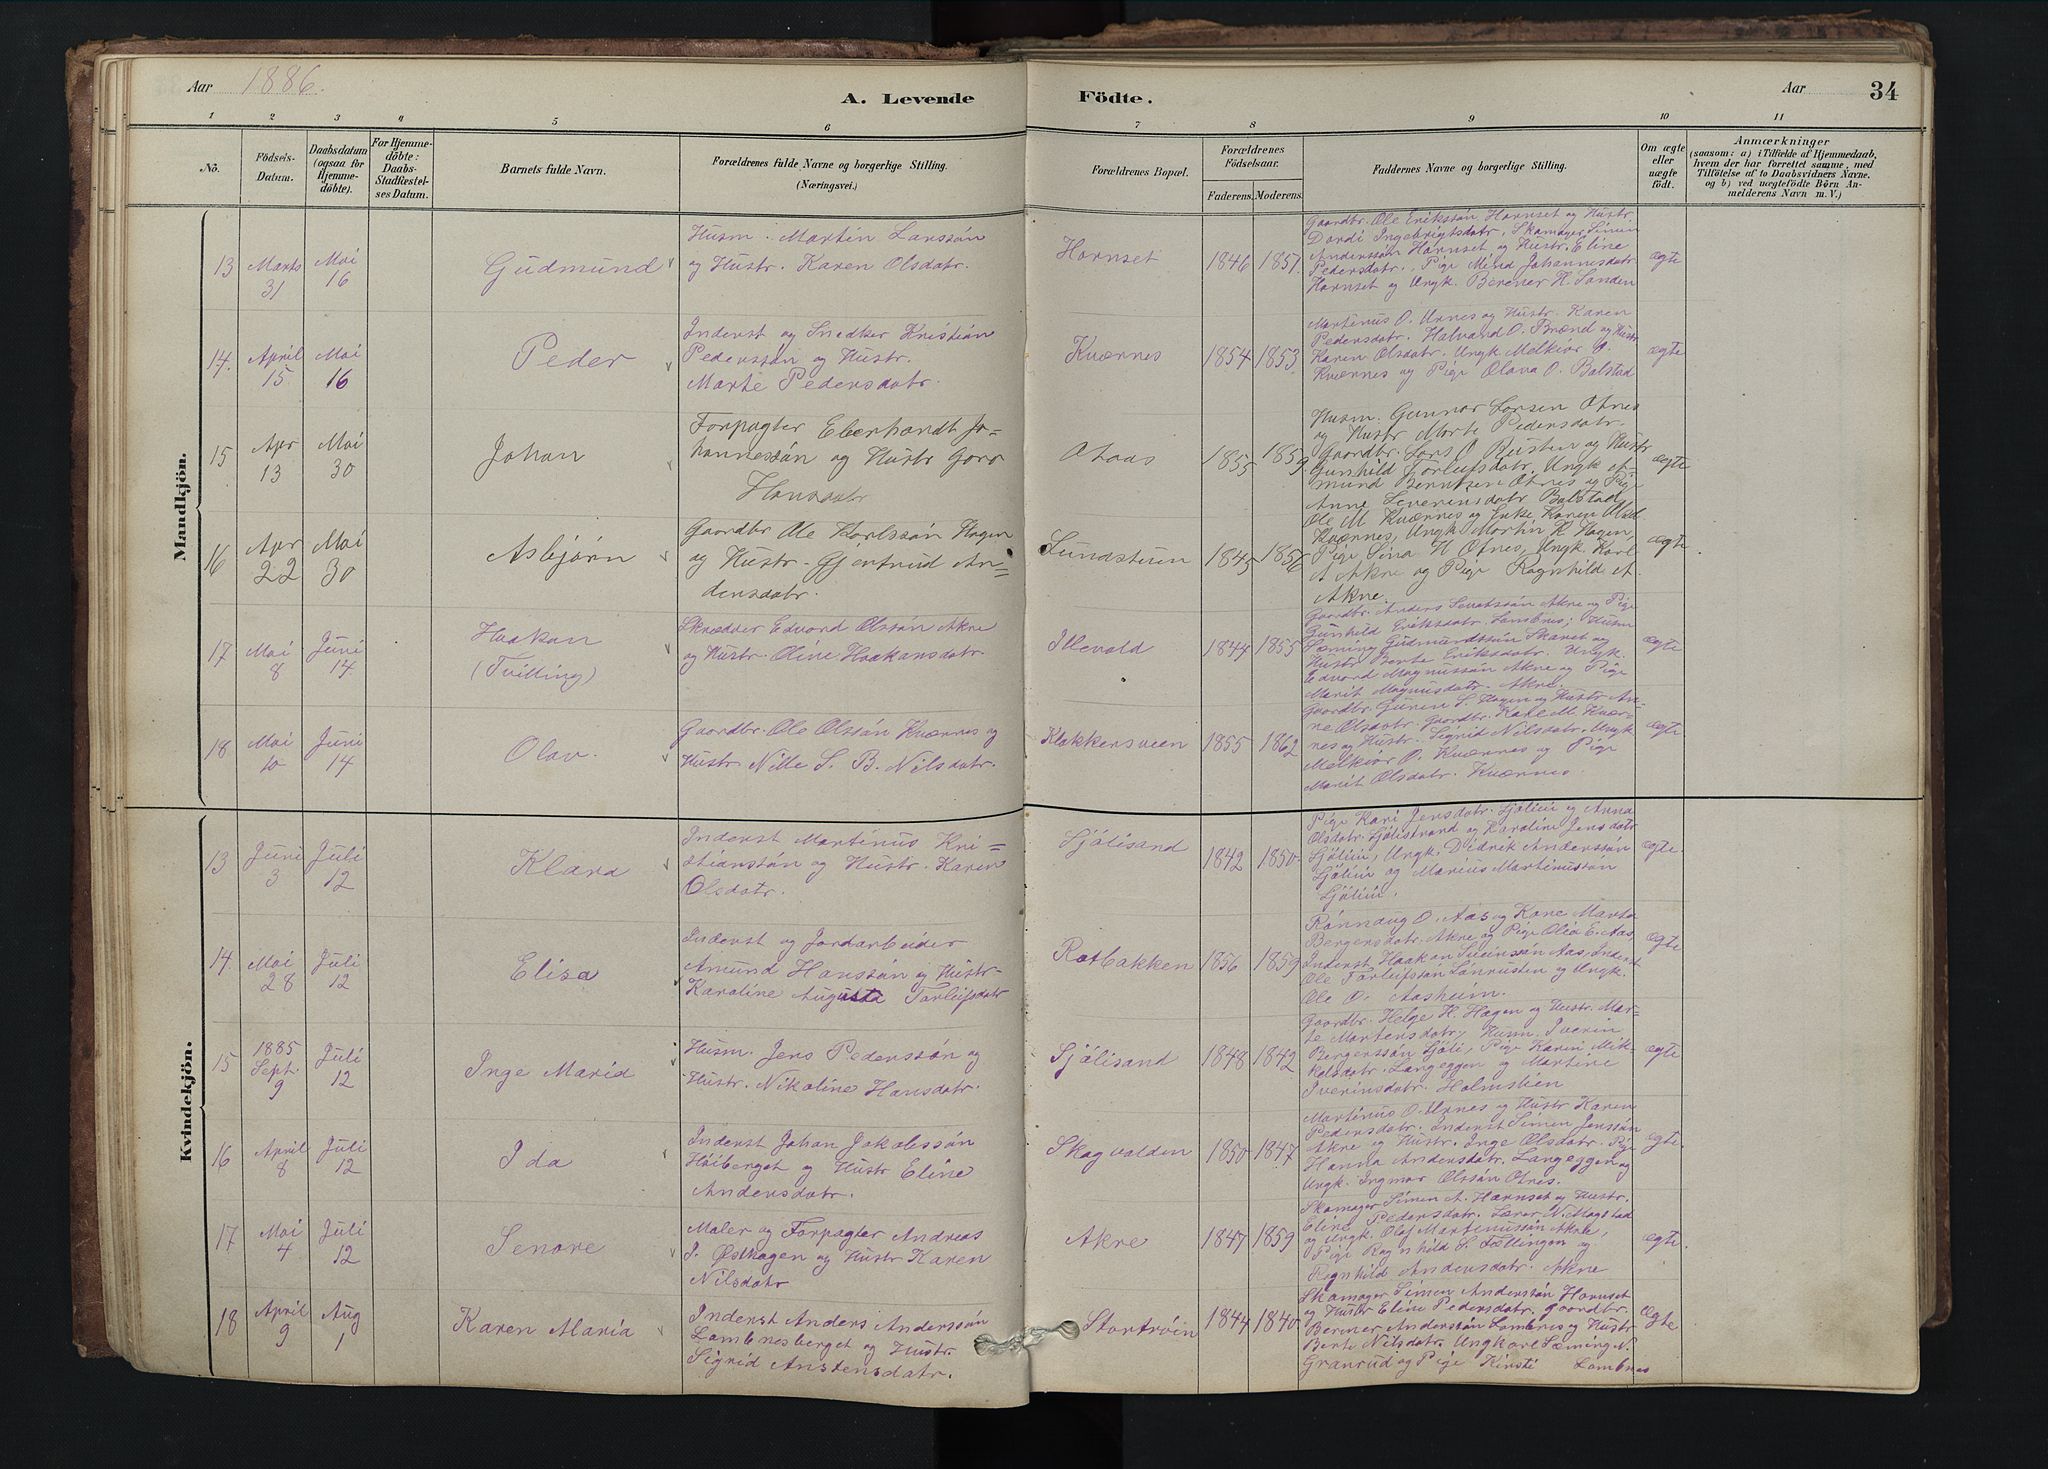 Aar 1886.
A. Levende Födte.
Aar 34
1 2 3 4 5 6 7 8 9 10 11
No.
Födsels-Datum.
Daabsdatum (ogsaa for Hjemmedöbte).
For Hjemmedöbte: Daabs-Stadfæstelses Datum.
Barnets fulde Navn.
Forældrenes fulde Navne og borgerlige Stilling. (Næringsvei.)
Forældrenes Bopæl.
Forældrenes Födselsaar.
Faderens. Moderens.
Faddernes Navne og borgerlige Stilling.
Om ægte eller uægte födt.
Anmærkninger
(saasom: a) i Tilfælde af Hjemmedaab,
hvem der har forrettet samme, med
Tilföielse af to Daabsvidners Navne,
og b) ved uægtefödte Börn Anmelderens Navn m. V.)
Mandkjön.
13 Marts 31 Mai 16 Gudmund
Husm. Martin Larssön
og Hustr. Karen Olsdatr.
Hornset 1846 1851.
Gaardbr. Ole Erikssön Hornset og Hustr.
Dordi Ingebrigtsdatr, Skomager Simen
Anderssön Hornset og Hustr. Eline
Pedersdatr., Pige Mina Johannesdatr
Hornset og Ungk. Berener H. Sanden
ægte
14. April 15 Mai 16 Peder
Inderst og Snedker Kristian
Pederssön og Hustr.
Marte Pedersdatr.
Kværnes 1854 1853.
Martinus O. Urnes og Hustr. Karen
Pedersdatr. Halvand O. Brænd og Hustr
Karen Olsdatr. Ungk Melkior O.
Kværnes og Pige Olava O. Bolstad
ægte
15 Apr 13 Mai 30 Johan
Forpagter Eberhardt Jo-
hannessön og Hustr Goro
Hansdatr
Otaas 1855 1859.
Husm. Gunnar Larsen Otnes
og Hustr Marte Pedersdatr.
Gaardbr. Lars O Busten og Hustr
Gunhild Torleifsdatr, Ungk A-
mund Berntsen Otnes og Pige
Anne Severinsdatr Bolstad
ægte
16 Apr 22 Mai 30 Asbjørn
Gaardbr Ole Karlssön Hagen
og Hustr. Gjertrud An-
dersdatr.
Lundstuen 1845 1856
Ole M Kværnes og Enke Karen Olsd
Kværnes, Ungk Martin K Hagen,
Pige Sina H Otnes, Ungk Karl
A Akre og Pige Ragnhild A.
Akre.
ægte
17 Mai 8 Juni 14 Haakon (Tvilling)
Skrædder Edvard Olssön Akre
og Hustr. Oline Haakonsdatr.
Illevold 1844 1855
Gaardbr. Anders Akre og Pige
Gunhild Eriksdatr. Lombnes; Husm
Sæming Gudmundssön Skaret og
Hustr Berte Eriksdatr. Ungk.
Edvard Magnussön Akre og Pige
Marit Magnusdatr. Akre.
ægte
18 Mai 10 Juni 14 Olav.
Gaardbr. Ole Olssön Kværnes og
Hustr. Nille S. B. Nilsdatr.
Klokkersveen 1855 1862
Gaardbr Guren S. Hagen og Hustr An-
ne Olsdatr. Gaardbr. Kale M. Kvær-
nes og Hustr. Sigrid Nilsdatr. Ungk
Melkior O. Kværnes og Pige
Marit Olsdatr. Kværnes.
ægte
Kvindekjön.
13 Juni 3 Juli 12 Klara
Inderst Martinus Kri-
stianssön og Hustr. Karen
Olsdatr.
Sjölisand 1842 1850.
Pige Kari Jensdatr. Sjöliin og Anna
Olsdatr. Sjölistrand og Karoline Jensdatr
Sjöliin, Ungk. Didrek Anderssön
Sjöliin og Marius Martinussön
Sjöliin.
ægte.
14. Mai 28 Juli 12 Elisa
Inderst og Jordarbeider
Amund Hanssön og Hustr.
Karoline Augusta Torleifsdatr
Rotbakken 1856 1859
Rönnaug O. Aas og Kone Marta
Bergersdatr. Akre og Pige Olia E. Aas,
Inderst Haakon Sveinssön Aas, Inderst
Ole Torleifssön Lönrusten og Ungk.
Ole O. Aasheim.
ægte
15 1885 Sept. 9 Juli 12 Inge Maria
Husm. Jens Pederssön og
Hustr. Nikoline Hansdatr.
Sjölisand 1848 1842
Gaardbr. Helge H. Hagen og Hustr. Mar-
te Martensdatr, Husm. Iverin
Bergerssön Sjöli, Pige Kareni Mik-
kelsdatr. Langeggen og Martine
Iverinsdatr. Holmstien
ægte
16 April 8 Juli 12 Ida
Inderst Johan Jakobssön
Höiberget og Hustr Eline
Andersdatr.
Skogvolden 1850 1847
Martinus O. Urnes og Hustr Karen
Pedersdatr. Inderst Simen Jenssön
Akre og Hustr. Inge Olsdatr. Pige
Hanna Andersdatr. Langeggen og
Ungk. Ingmar Olssön Otnes.
ægte.
17 Mai 4 Juli 12 Senore
Maler og Forpagter Andreas
J. Østhagen og Hustr Karen
Nilsdatr
Akre 1847 1859
Skomager Simen A. Hornset og Hustr.
Eline Pedersdatr. Lærer N. Mogstad
og Ungk. Olaf Martinussön Akre,
Pige Ragnhild S. Fællingen og
Ragnhild Andersdatr. Akre
ægte.
18 April 9 Aug 1 Karen Maria
Inderst Anders Anderssön
Lombnesberget og Hustr.
Sigrid Anstensdatr.
Stortröen 1844 1840.
Skomager Simen Anderssön Hornset
og Hustr Eline Pedersdatr. Gaardbr.
Berner Anderssön Lombnes og Hustr
Berte Nilsdatr. Ungkarl Sæming N.
Granrud og Pige Kirsti Lombnes
ægte